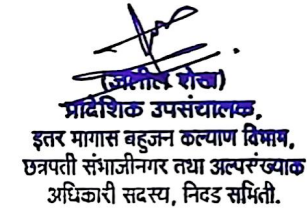 (जलील शेख)
प्रादेशिक उपसंचालक,
इतर मागास बहुजन कल्याण विभाग,
छत्रपती संभाजीनगर तथा अल्पसंख्याक
अधिकारी सदस्य, निवड समिती.